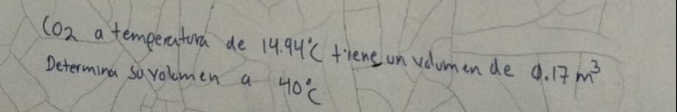 CO2 a temperatura de 14.94°C tiene un volumen de 0.17 m³
Determina su volumen a 40°C